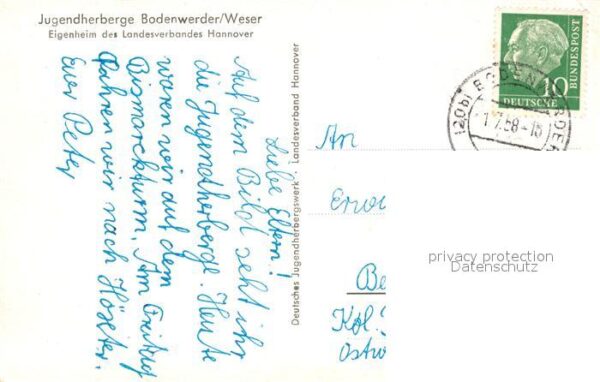 Jugendherberge Bodenwerder/Weser
Eigenheim des Landesverbandes Hannover
Liebe Eltern!
Auf dem Bild seht ihr
die Jugendherberge. Heute
waren wir auf dem
Bismarckturm. Am Freitag
fahren wir nach Höxter.
Euer Peter
Deutsches Jugendherbergswerk · Landesverband Hannover
10
DEUTSCHE
BUNDESPOST
(20b) BODENWERDER
1.7.58-15
An
Be
Kol.
Ostw
privacy protection
Datenschutz